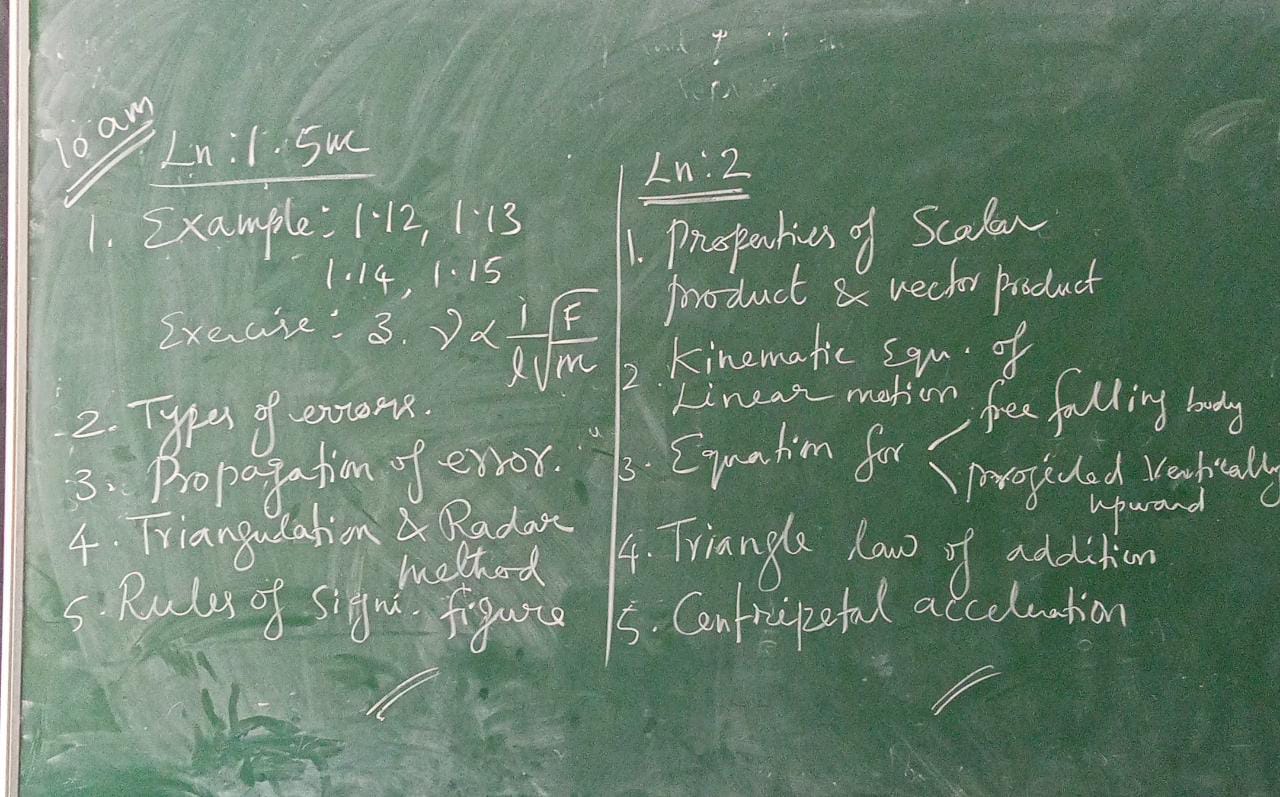 10 am
Ln : 1. 5m
1. Example: 1.12, 1.13
1.14, 1.15
Exercise: 3. ν ∝ 1/l √F/m
2. Types of errors.
3. Propagation of error.
4. Triangulation & Radar
method
5. Rules of signi. figure
Ln: 2
1. Properties of Scalar
product & vector product
2. Kinematic Equ. of
Linear motion
3. Equation for < free falling body
projected vertically
upward
4. Triangle law of addition
5. Centripetal acceleration